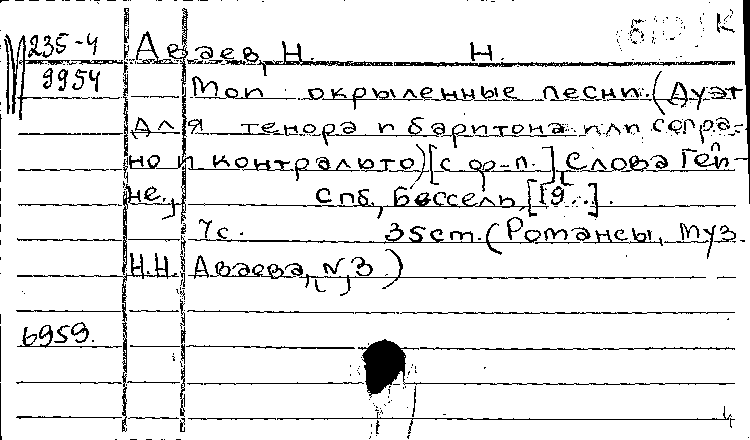 235-4 Аваев, Н. Н. (БЮ) К
9954
Мои окрыленные песни. (Дуэт
для тенора и баритона или сопра-
но и контральто) [с ф-п.]. Слова Гей-
не.
Спб., Бессель, [19..].
7с. 35cm. (Романсы, муз.
Н.Н. Аваева, №3.)
6959.
4